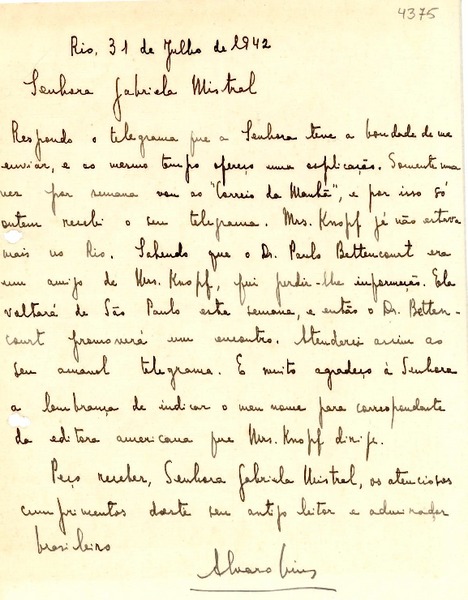 4375
Rio, 31 de Julho de 1942
Senhora Gabriela Mistral
Respondo o telegrama que a Senhora teve a bondade de me
enviar, e ao mesmo tempo ofereço uma explicação. Somente uma
vez por semana vou ao "Correio da Manhã", e por isso só
ontem recebi o seu telegrama. Mrs. Knopf já não estava
mais no Rio. Sabendo que o Dr. Paulo Bettencourt era
um amigo de Mrs. Knopf, fui pedir-lhe informação. Ela
voltará de São Paulo esta semana, e então o Dr. Betten-
court promoverá um encontro. Atenderei assim ao
seu amavel telegrama. E muito agradeço à Senhora
a lembrança de indicar o meu nome para correspondente
da editora americana que Mrs. Knopf dirige.
Peço receber, Senhora Gabriela Mistral, os atenciosos
cumprimentos deste seu antigo leitor e admirador
brasileiro
Alvaro Lins